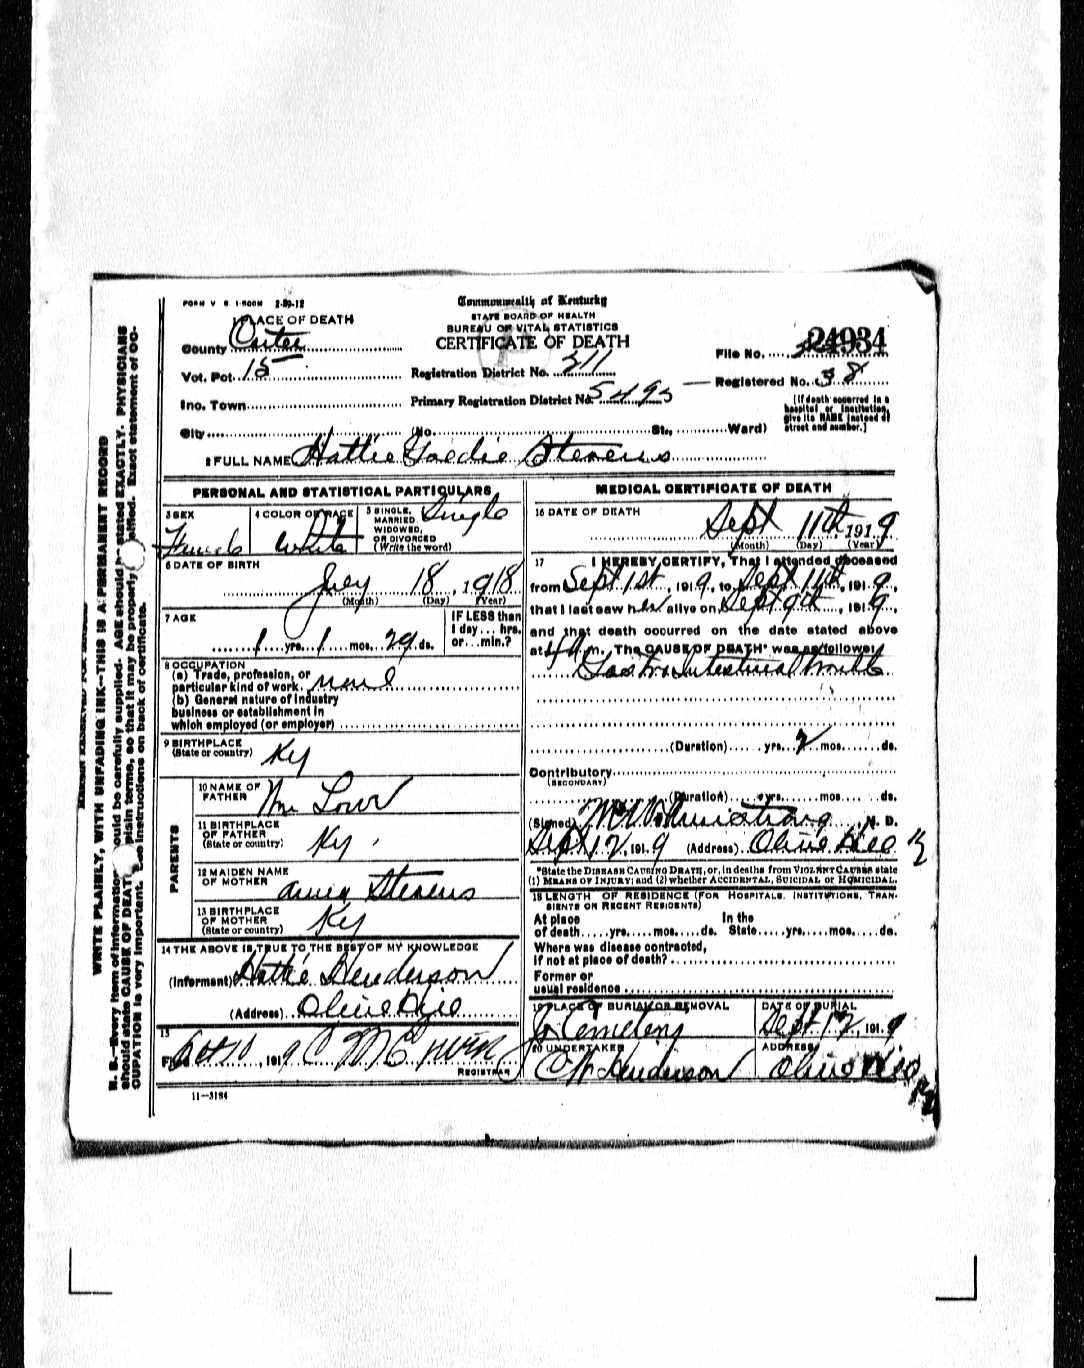 FORM V S 1-500M 2-29-12
Commonwealth of Kentucky
STATE BOARD OF HEALTH
BUREAU OF VITAL STATISTICS
CERTIFICATE OF DEATH
1 PLACE OF DEATH
County Carter
Vot. Pct. 15
Inc. Town
City (No. St., Ward)
Registration District No. 211
Primary Registration District No. 5493
File No. 24934
Registered No. 38
[If death occurred in a
hospital or institution,
give its NAME instead of
street and number.]
2 FULL NAME Hattie Goldie Stevens
PERSONAL AND STATISTICAL PARTICULARS
3 SEX
Female
4 COLOR OR RACE
White
5 SINGLE,
MARRIED,
WIDOWED,
OR DIVORCED
(Write the word)
Single
6 DATE OF BIRTH
July 18, 1918
(Month) (Day) (Year)
7 AGE
1 yrs. 1 mos. 29 ds.
IF LESS than
1 day... hrs.
or... min.?
8 OCCUPATION
(a) Trade, profession, or
particular kind of work. none
(b) General nature of industry
business or establishment in
which employed (or employer)
9 BIRTHPLACE
(State or country) Ky
PARENTS
10 NAME OF
FATHER Wm
11 BIRTHPLACE
OF FATHER
(State or country) Ky
12 MAIDEN NAME
OF MOTHER Stevens
13 BIRTHPLACE
OF MOTHER
(State or country) Ky
14 THE ABOVE IS TRUE TO THE BEST OF MY KNOWLEDGE
(Informant) Hattie Henderson
(Address) Olive Hill
15
Filed Oct 10, 1919 C M
REGISTRAR
11-3184
MEDICAL CERTIFICATE OF DEATH
16 DATE OF DEATH
Sept 11th, 1919
(Month) (Day) (Year)
17 I HEREBY CERTIFY, That I attended deceased
from Sept 1st, 1919, to Sept 11th, 1919,
that I last saw her alive on Sept 9th, 1919,
and that death occurred on the date stated above
at 4 A m. The CAUSE OF DEATH* was as follows:
Gastro Intestinal
(Duration) yrs. 2 mos. ds.
Contributory
(SECONDARY)
(Duration) yrs. mos. ds.
(Signed) Armstrong, M. D.
Sept 12, 1919 (Address) Olive Hill Ky
*State the DISEASE CAUSING DEATH, or, in deaths from VIOLENT CAUSES state
(1) MEANS OF INJURY; and (2) whether ACCIDENTAL, SUICIDAL or HOMICIDAL.
18 LENGTH OF RESIDENCE (FOR HOSPITALS, INSTITUTIONS, TRAN-
SIENTS OR RECENT RESIDENTS)
At place In the
of death yrs. mos. ds. State yrs. mos. ds.
Where was disease contracted,
if not at place of death?
Former or
usual residence
19 PLACE OF BURIAL OR REMOVAL
Cemetery
DATE OF BURIAL
Sept 12, 1919
20 UNDERTAKER
C W Henderson
ADDRESS
Olive Hill
Ky
WRITE PLAINLY, WITH UNFADING INK--THIS IS A PERMANENT RECORD
N. B.--Every item of information should be carefully supplied. AGE should be stated EXACTLY. PHYSICIANS
should state CAUSE OF DEATH in plain terms, so that it may be properly classified. Exact statement of OC-
CUPATION is very important. See instructions on back of certificate.